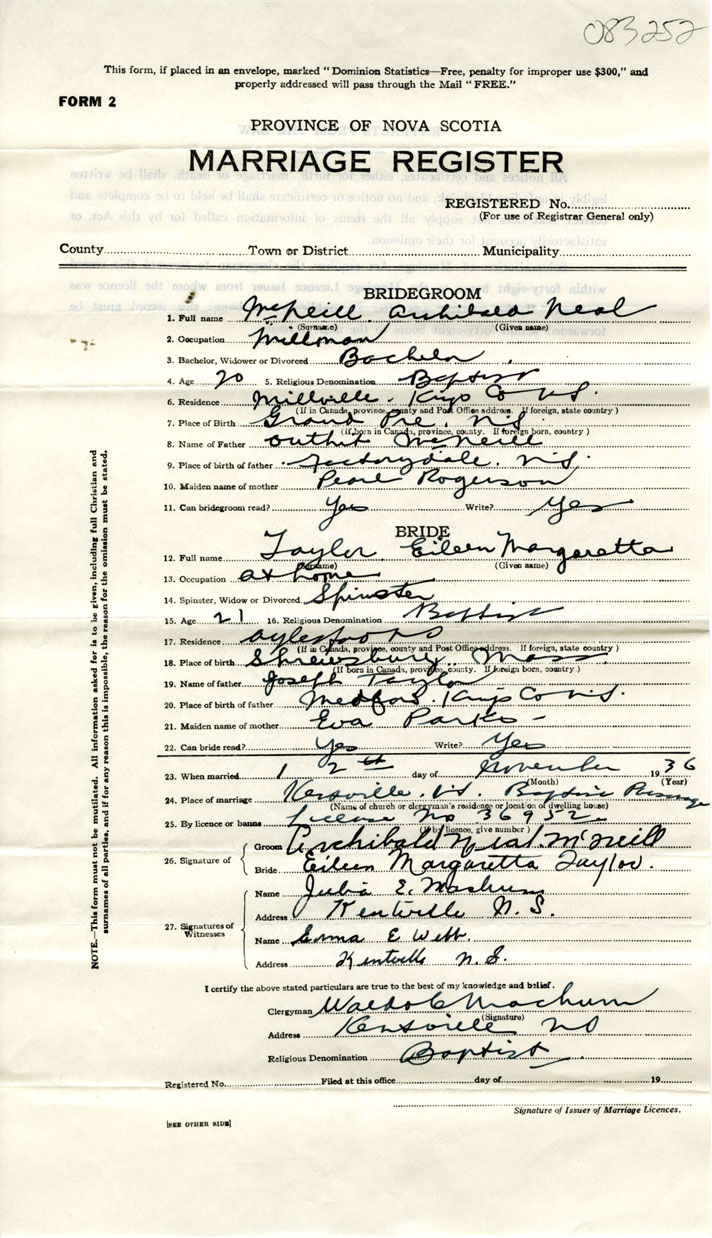 083252
This form, if placed in an envelope, marked "Dominion Statistics—Free, penalty for improper use $300," and
properly addressed will pass through the Mail "FREE."
FORM 2
PROVINCE OF NOVA SCOTIA
MARRIAGE REGISTER
REGISTERED No.
(For use of Registrar General only)
County Town or District Municipality
BRIDEGROOM
1. Full name McNeill Archibald Neal
(Surname) (Given name)
2. Occupation Millman
3. Bachelor, Widower or Divorced Bachelor
4. Age 20 5. Religious Denomination Baptist
6. Residence Millville. Kings Co N.S.
(If in Canada, province, county and Post Office address. If foreign, state country)
7. Place of Birth Grand Pre. N.S.
(If born in Canada, province, county. If foreign born, country)
8. Name of Father Outhit McNeill
9. Place of birth of father Factorydale. N.S.
10. Maiden name of mother Pearl Rogerson
11. Can bridegroom read? Yes Write? Yes
BRIDE
12. Full name Taylor Eileen Margaretta
(Surname) (Given name)
13. Occupation at home
14. Spinster, Widow or Divorced Spinster
15. Age 21 16. Religious Denomination Baptist
17. Residence Aylesford NS
(If in Canada, province, county and Post Office address. If foreign, state country)
18. Place of birth Shrewsbury Mass
(If born in Canada, province, county. If foreign born, country)
19. Name of father Joseph Taylor
20. Place of birth of father Medford Kings Co N.S.
21. Maiden name of mother Eva Parks
22. Can bride read? Yes Write? Yes
23. When married 12th day of November 1936
(Month) (Year)
24. Place of marriage Kentville. N.S. Baptist Parsonage
(Name of church or clergyman's residence or location of dwelling house)
25. By licence or banns License No 36952
(If by licence, give number)
26. Signature of Groom Archibald Neal McNeill
Bride Eileen Margaretta Taylor.
27. Signatures of Witnesses
Name Julia E. Machum
Address Kentville N.S.
Name Emma E Webb.
Address Kentville N.S.
I certify the above stated particulars are true to the best of my knowledge and belief.
Clergyman Waldo C Machum
(Signature)
Address Kentville NS
Religious Denomination Baptist
Registered No. Filed at this office day of 19
Signature of Issuer of Marriage Licences.
[SEE OTHER SIDE]
NOTE.—This form must not be mutilated. All information asked for is to be given, including full Christian and
surnames of all parties, and if for any reason this is impossible, the reason for the omission must be stated.